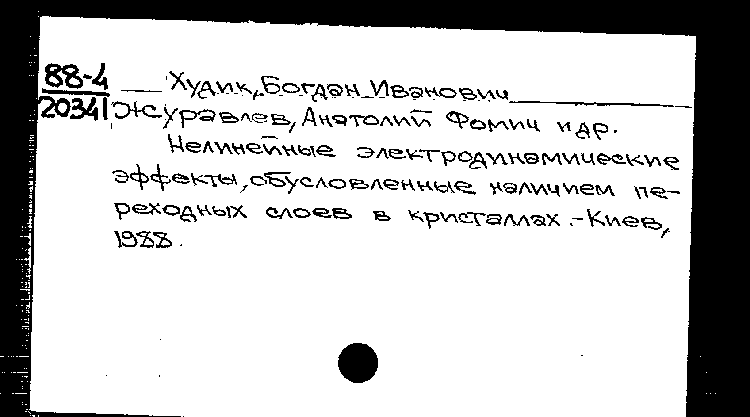 88-4
20341
Худик, Богдан Иванович
Журавлев, Анатолий Фомич и др.
Нелинейные электродинамические
эффекты, обусловленные наличием пе-
реходных слоев в кристаллах. - Киев,
1988.